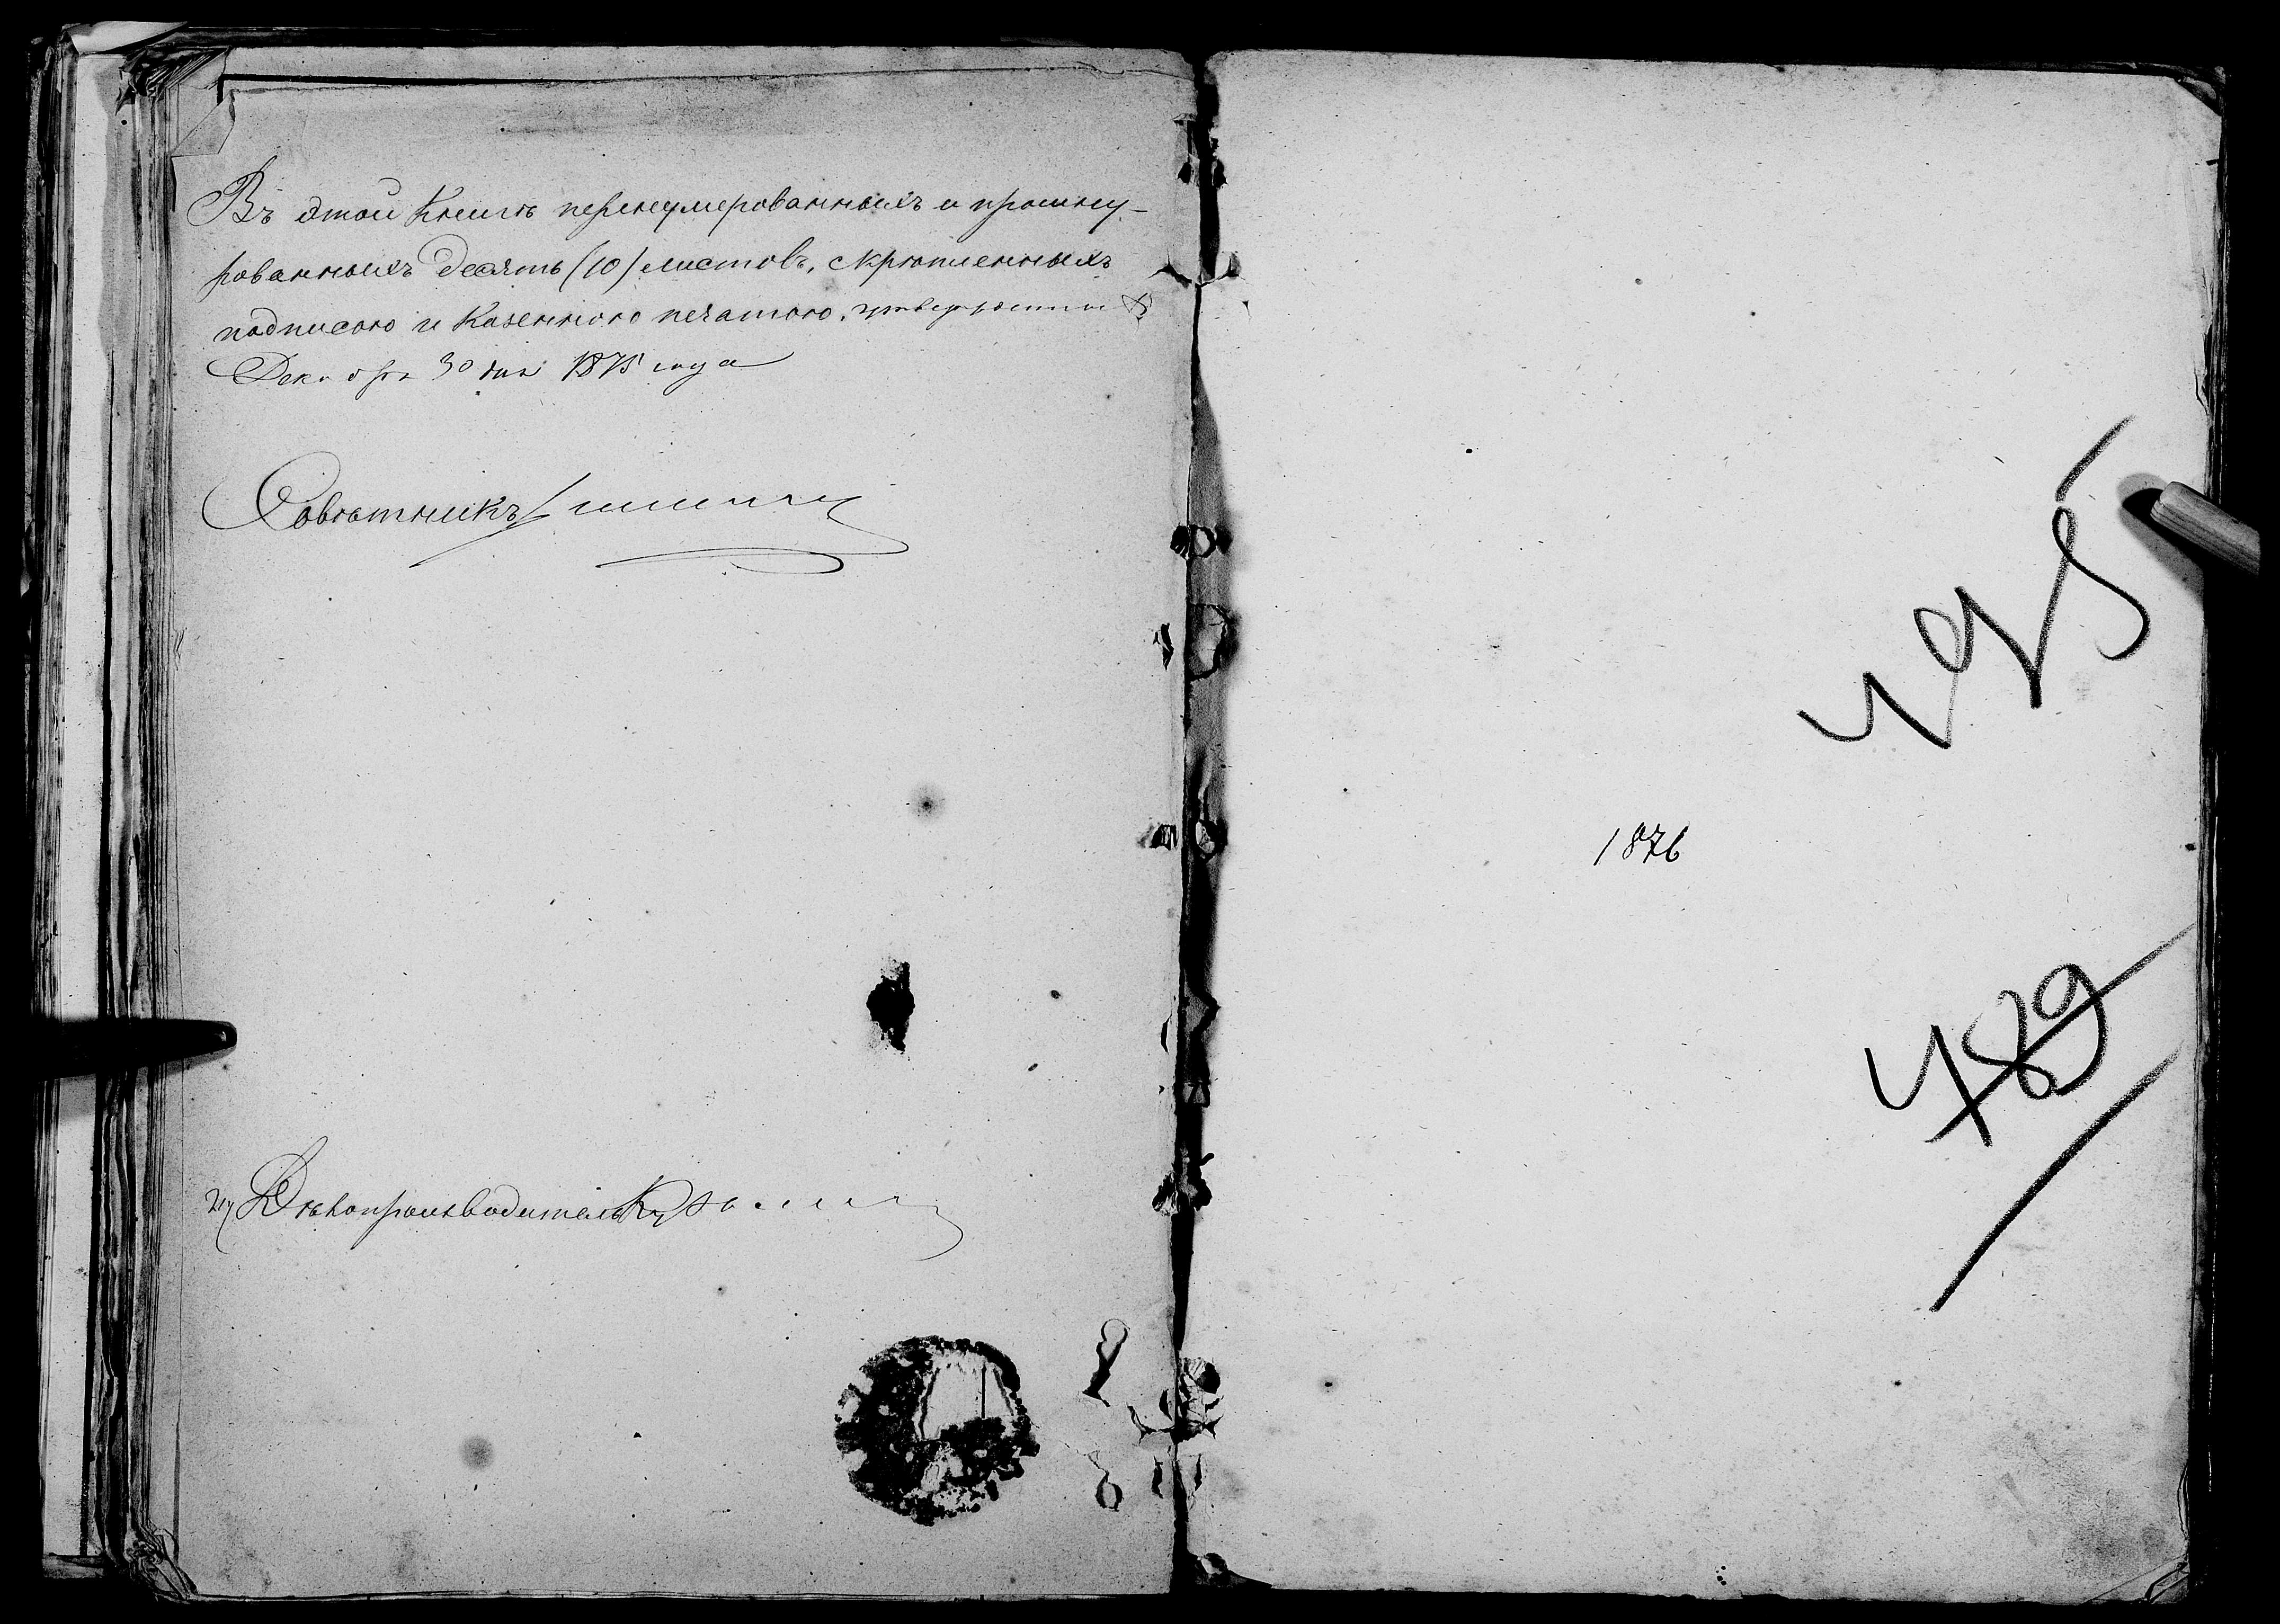 Въ этой Книгѣ перенумерованныхъ и прошну-
рованныхъ десять (10) листовъ, скрѣпленныхъ
подписью и Казенною печатью.
Декабря 30 дня 1875 года
Совѣтникъ
Дѣлопроизводитель
495
1876
489